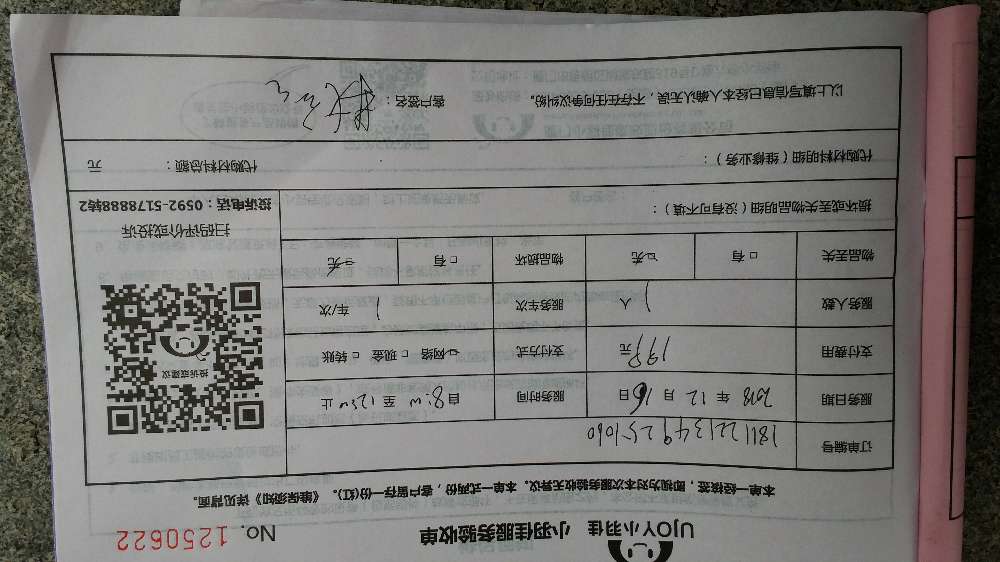 UJOY小羽佳 小羽佳服务验收单 No. 1250622
本单一经核签，即视为对本次服务验收无异议。本单一式两份，客户留存一份(红)。《维保须知》详见背面。
订单编号 181122134925-1060
服务日期 2018 年 12 月 16 日 服务时间 自 8:00 至 12:00 止
支付费用 199元 支付方式 ☑网络 □现金 □转账
服务人数 1 人 服务车次 1 车/次
物品丢失 □有 ☑无 物品损坏 □有 ☑无
投诉或建议
扫码评价或投诉
投诉电话：0592-5178888转2
损坏或丢失物品明细（没有可不填）：
代购材料明细（维修业务）： 代购材料总额： 元
以上填写信息已经本人确认无误，不存在任何争议纠纷。 客户签名：